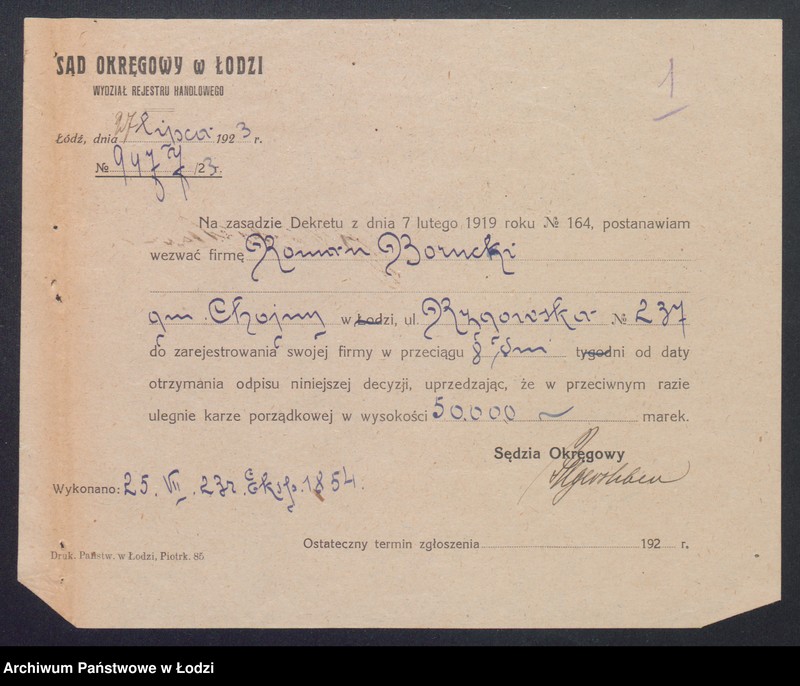 SĄD OKRĘGOWY w ŁODZI
WYDZIAŁ REJESTRU HANDLOWEGO
1
Łódź, dnia 27 lipca 1923 r.
№ 947 /23.
Na zasadzie Dekretu z dnia 7 lutego 1919 roku № 164, postanawiam
wezwać firmę Roman Borucki
gm. Chojny w Łodzi, ul. Rzgowska № 237
do zarejestrowania swojej firmy w przeciągu 8 dni tygodni od daty
otrzymania odpisu niniejszej decyzji, uprzedzając, że w przeciwnym razie
ulegnie karze porządkowej w wysokości 50.000 marek.
Sędzia Okręgowy
Wykonano: 25. VII. 23r. Eksp. 1854.
Ostateczny termin zgłoszenia 192 r.
Druk. Państw. w Łodzi, Piotrk. 85
Archiwum Państwowe w Łodzi